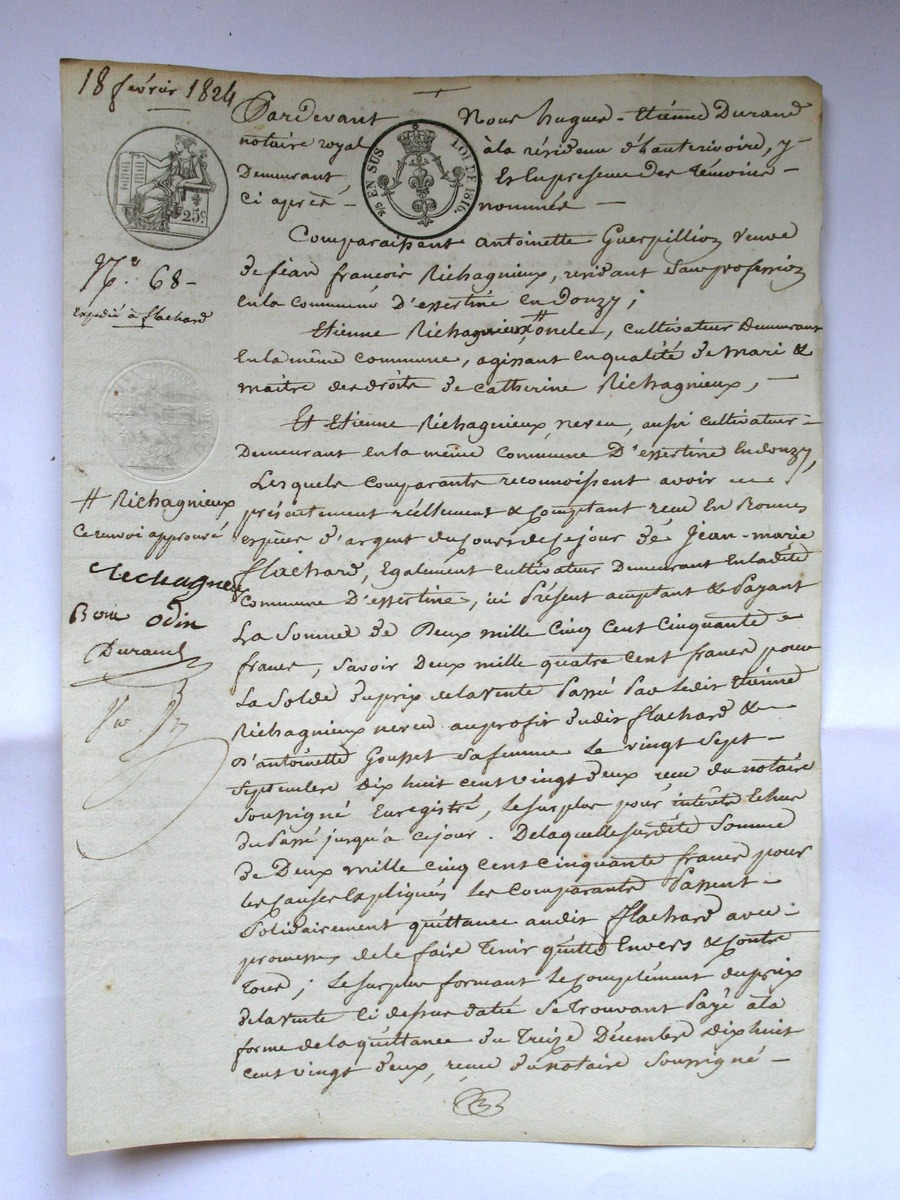 18 février 1824
Pardevant Nous hugues - Etiénne Durand
notaire royal à la résidence d'hauterivoire, y
Demeurant Et En presence des témoins -
Ci après - nommés -
5/5 EN SUS LOI DE 1816.
25c.
N.° 68 -
Expedié à flachard
Comparaissent antoinette Guerpillion veuve
de jéan françois Richagnieux, residant sans profession
en la commune D'essertine en donzy;
Etienne Richagnieux # oncle, cultivateur Demeurant
En la même commune, agissant en qualité de mari &
maitre des droits de catherine Richagnieux, -
Et Etienne Richagnieux, neveu, aussi cultivateur -
Demeurant en la même Commune D'essertine En donzy,
Lesquels comparants reconnoissent avoir
présentement réellement & comptant recu En Bonnes
espèces d'argent du cours de ce jour de Jean-marie
flachard, Egalement cultivateur Demeurant En ladite
Commune D'essertine, ici Présent acceptant & Payant
La Somme de Deux mille cinq cent cinquante
francs, savoir Deux mille quatre cent francs pour
La Solde du prix de la vente Passé Par ledit Etienne
Richagnieux neveu au profit dudit flachard &
D'antoinette Gousset sa femme Le vingt sept -
Septembre dix huit cent vingt deux recu du notaire
Soussigné Enregistré, Le surplus pour intérêts Echus
du Passé jusqu'à ce jour. De laquelle susdite Somme
de Deux mille cinq cent cinquante francs pour
les causes Expliquées Les comparants Passent -
Solidairement quittance audit flachard avec -
promesse de le faire tenir quitte Envers & Contre
Tous; Le surplus formant Le Complément du prix
de la vente Ci dessus datée Se trouvant Payé à la
forme de la quittance du Treize Décembre dix huit
cent vingt deux, recue du notaire Soussigné -
# Richagnieux
Ce renvoi approuvé
Odin
Durand